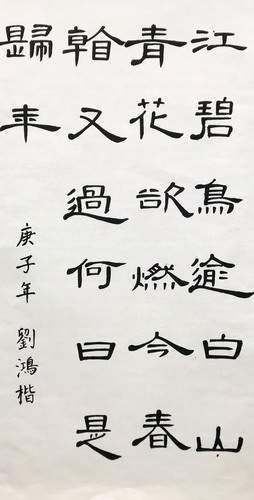 江碧鳥逾白山
青花欲燃今春
看又過何日是
歸年
庚子年 劉鴻楷